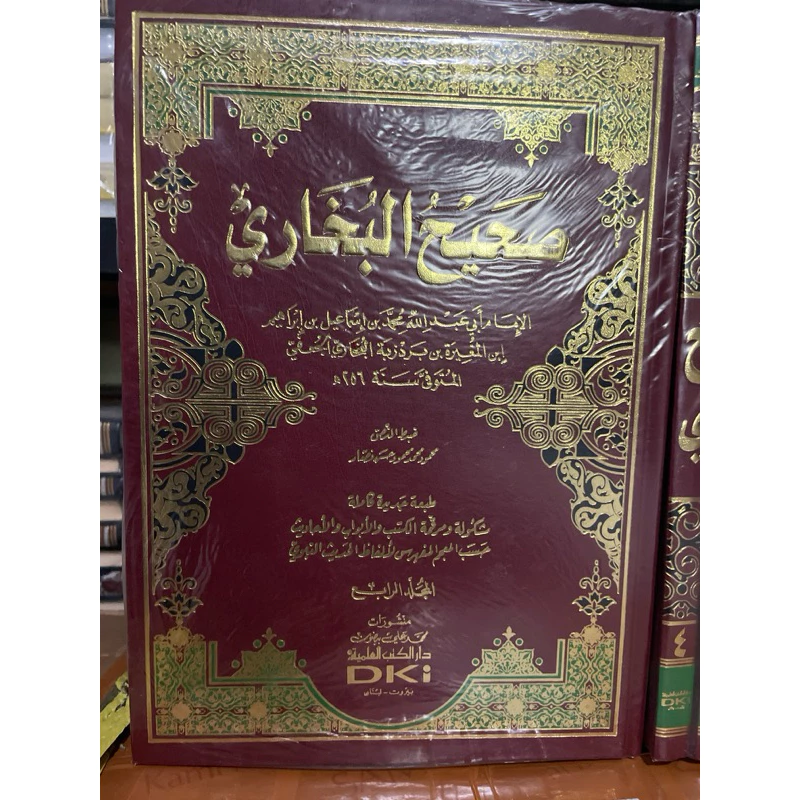 صَحِيحُ البُخَارِيِّ
الإمام أبي عبد الله محمد بن إسماعيل بن إبراهيم
ابن المغيرة بن بردزبة البخاري الجعفي
المتوفى سنة ٢٥٦ھ
ضبط النص
محمود محمد محمود حسن نصار
طبعة جديدة كاملة
مشكولة ومرقمة الكتب والأبواب والأحاديث
حسب المعجم المفهرس لألفاظ الحديث النبوي
المجلد الرابع
منشورات
محمد علي بيضون
دار الكتب العلمية
DKi
بيروت - لبنان
٤
DKi